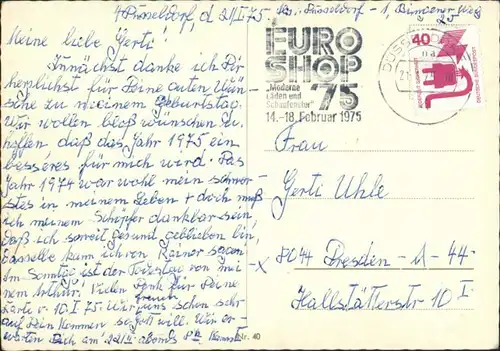 4 Düsseldorf, d. 21/I 75 - Düsseldorf - 1,
Meine liebe Gerti!
Zunächst danke ich Dir
herzlichst für Deine guten Wün-
sche zu meinem Geburtstag.
Wir wollen bloß wünschen u.
hoffen daß das Jahr 1975 ein
besseres für mich wird. Das
Jahr 1974 war wohl mein schwer-
stes in meinem Leben + doch muß
ich meinem Schöpfer dankbar sein,
daß ich soweit gesund geblieben bin,
dasselbe kann ich von Rainer sagen.
Im Sonntag ist der Todestag von mei-
nem Arthur. Vielen Dank für Deine
Karte v. 10.I.75. Wir freuen uns schon sehr
auf Dein Kommen so Gott will. Wir er-
warten Dich am abends
EURO
SHOP
'75
"Moderne
Läden und
Schaufenster"
14.-18. Februar 1975
DÜSSELDORF
40
DEUTSCHE BUNDESPOST
Frau
Gerti Uhle
8044 Dresden - A - 44 -
Hallstätterstr. 10 I
Nr. 40